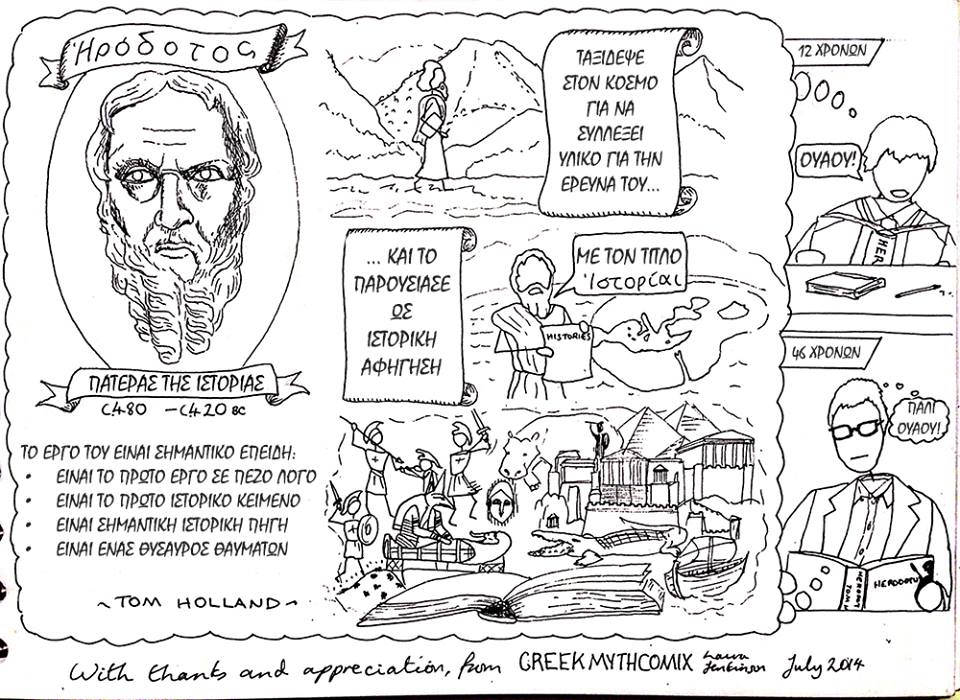 Ἡρόδοτος
ΠΑΤΕΡΑΣ ΤΗΣ ΙΣΤΟΡΙΑΣ
C480 – C420 BC
ΤΟ ΕΡΓΟ ΤΟΥ ΕΙΝΑΙ ΣΗΜΑΝΤΙΚΟ ΕΠΕΙΔΗ:
• ΕΙΝΑΙ ΤΟ ΠΡΩΤΟ ΕΡΓΟ ΣΕ ΠΕΖΟ ΛΟΓΟ
• ΕΙΝΑΙ ΤΟ ΠΡΩΤΟ ΙΣΤΟΡΙΚΟ ΚΕΙΜΕΝΟ
• ΕΙΝΑΙ ΣΗΜΑΝΤΙΚΗ ΙΣΤΟΡΙΚΗ ΠΗΓΗ
• ΕΙΝΑΙ ΕΝΑΣ ΘΥΣΑΥΡΟΣ ΘΑΥΜΑΤΩΝ
~TOM HOLLAND~
ΤΑΞΙΔΕΨΕ
ΣΤΟΝ ΚΟΣΜΟ
ΓΙΑ ΝΑ
ΣΥΛΛΕΞΕΙ
ΥΛΙΚΟ ΓΙΑ ΤΗΝ
ΕΡΕΥΝΑ ΤΟΥ...
... ΚΑΙ ΤΟ
ΠΑΡΟΥΣΙΑΣΕ
ΩΣ
ΙΣΤΟΡΙΚΗ
ΑΦΗΓΗΣΗ
ΜΕ ΤΟΝ ΤΙΤΛΟ
Ἱστορίαι
HISTORIES
12 ΧΡΟΝΩΝ
ΟΥΑΟΥ!
HER
46 ΧΡΟΝΩΝ
ΠΑΛΙ
ΟΥΑΟΥ!
HERODOTU
With thanks and appreciation, from GREEKMYTHCOMIX Laura Jenkinson July 2014